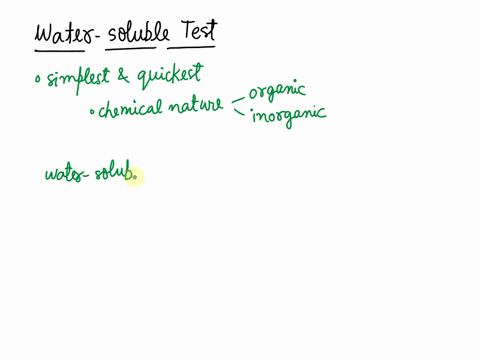 Water-soluble Test
• simplest & quickest
organic
• chemical nature
inorganic
water-solub.